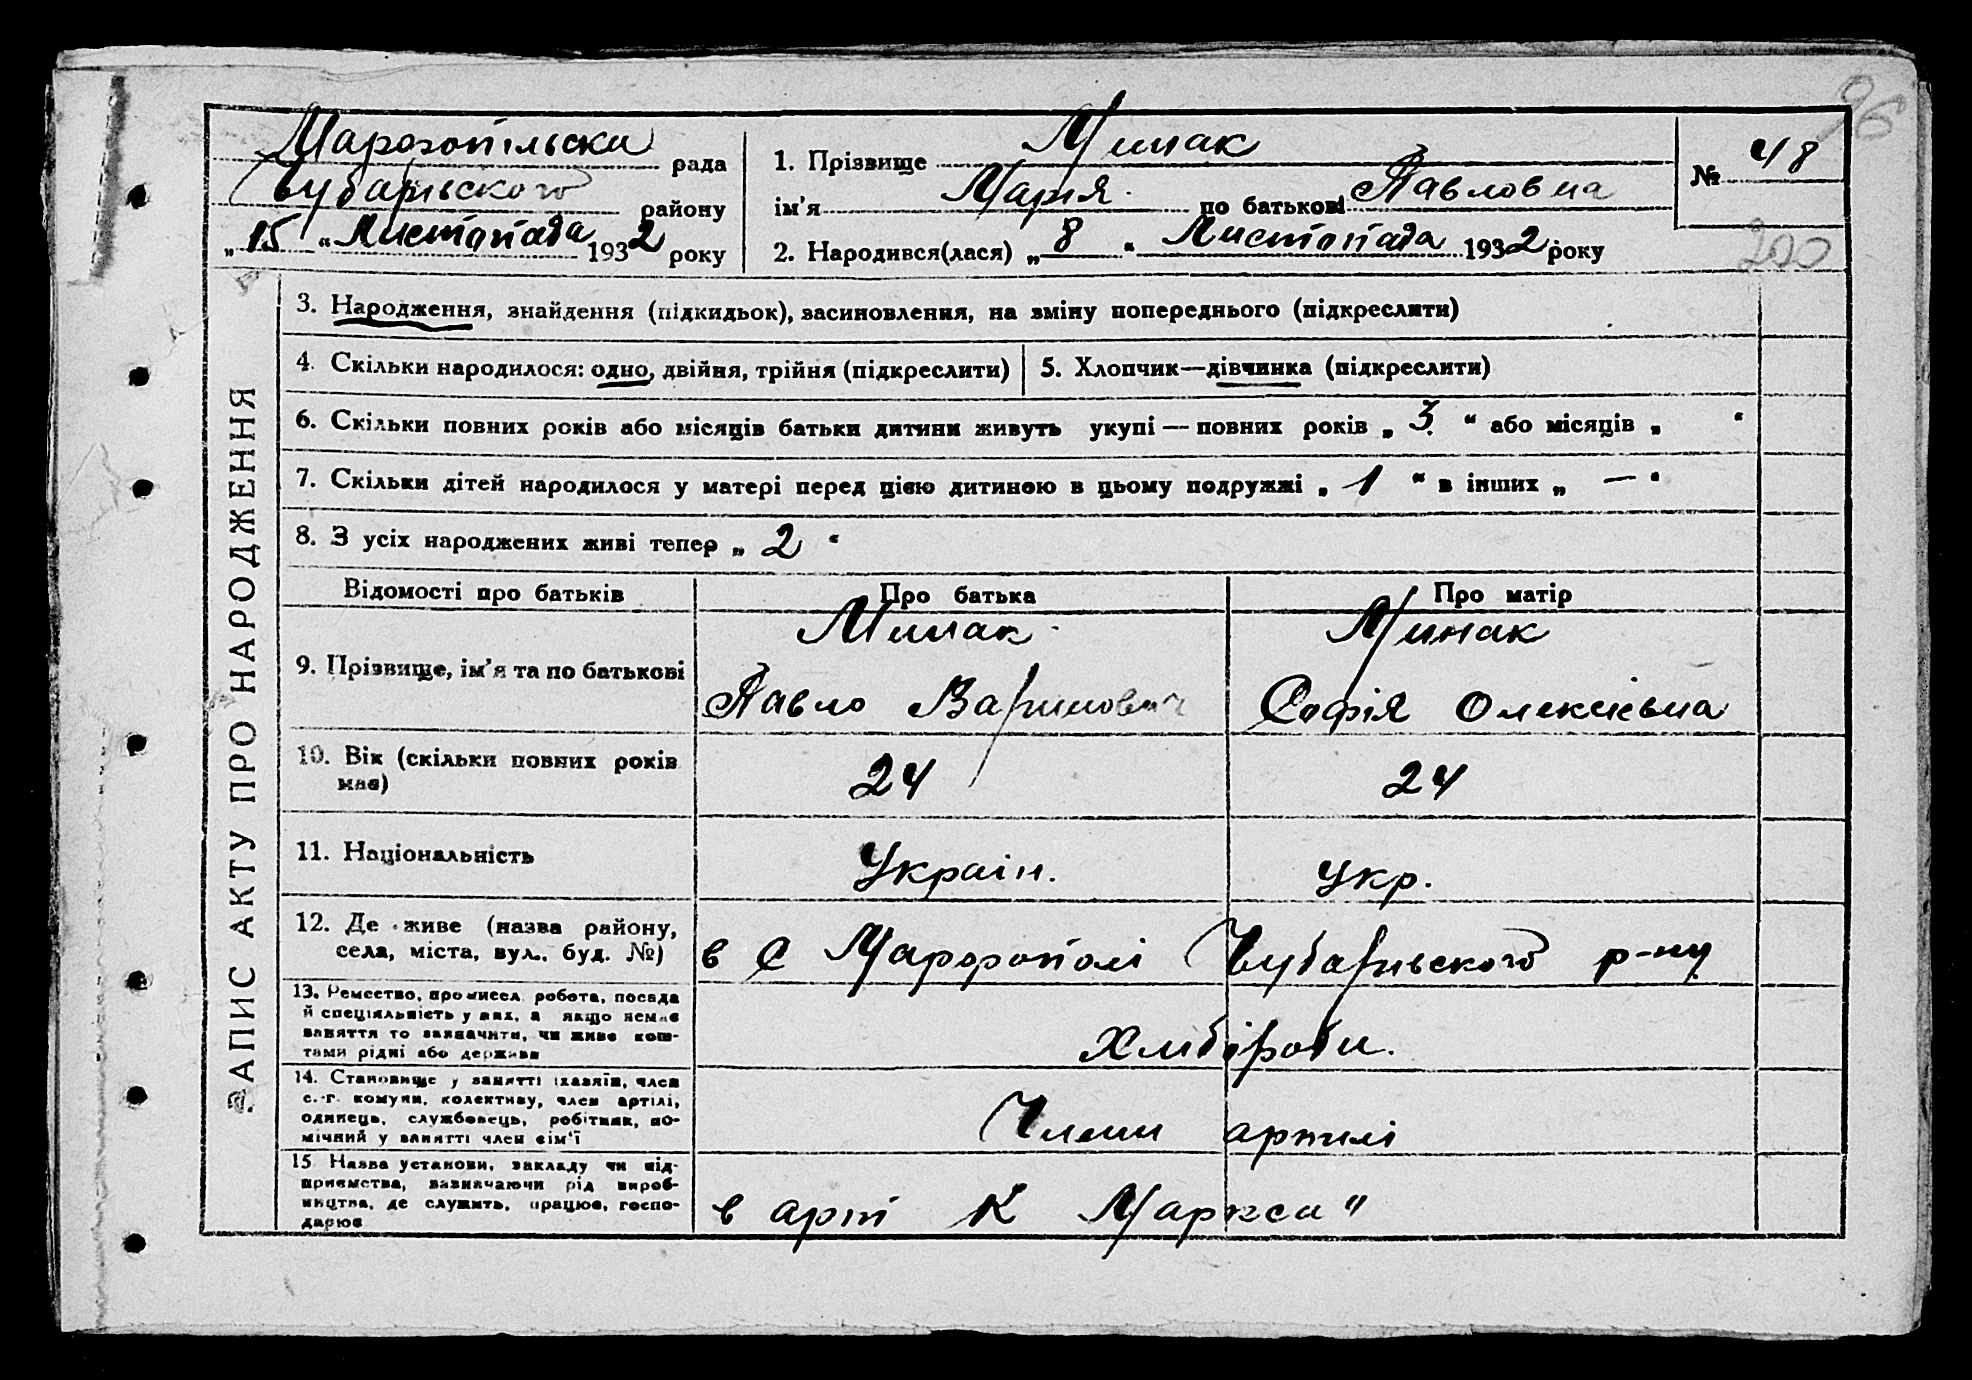 96
Марогопільска рада
Чубарівського району
„ 15 “ Листопада 1932 року
1. Прізвище Минак
ім’я Марія по батькові Павловна
2. Народився(лася) „ 8 “ Листопада 1932 року
№ 48
200
ЗАПИС АКТУ ПРО НАРОДЖЕННЯ
3. Народження, знайдення (підкидьок), засиновлення, на зміну попереднього (підкреслити)
4. Скільки народилося: одно, двійня, трійня (підкреслити)
5. Хлопчик—дівчинка (підкреслити)
6. Скільки повних років або місяців батьки дитини живуть укупі — повних років „ 3 “ або місяців „ “
7. Скільки дітей народилося у матері перед цією дитиною в цьому подружжі „ 1 “ в інших „ — “
8. З усіх народжених живі тепер „ 2 “
Відомості про батьків Про батька Про матір
9. Прізвище, ім’я та по батькові
Минак
Павло
Минак
Софія Олексієвна
10. Вік (скільки повних років
має)
24
24
11. Національність
Україн.
Укр.
12. Де живе (назва району,
села, міста, вул., буд. №)
в С Маророполі Чубарівського р-ну
13. Ремество, промисел, робота, посада
й спеціяльність у них, а якщо немає
заняття то зазначити, чи живе кош-
тами рідні або держави
Хлибороби.
14. Становище у занятті (хазяїн, член
с.-г. комуни, колективу, член артілі,
одинець, службовець, робітник, по-
мічний у занятті член сім’ї
Члени артилі
15 Назва установи, закладу чи під-
приємства, зазначаючи рід вироб-
ництва, де служить, працює, госпо-
дарює
в арті К Маркса"